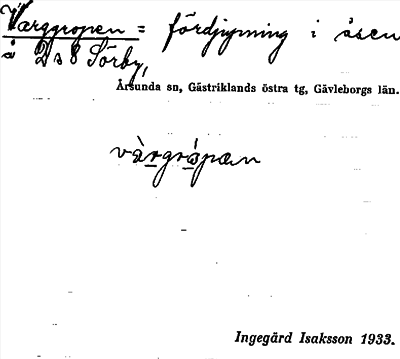 Varggropen = fördjupning i åsen
å 2s8 Sörby,
Årsunda sn, Gästriklands östra tg, Gävleborgs län.
vàrgrópan
Ingegärd Isaksson 1933.